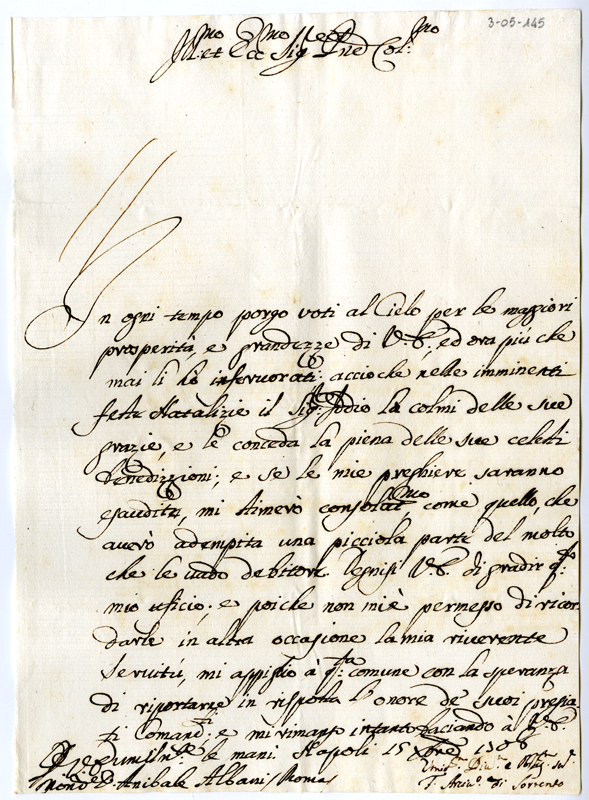 3-05-145
Ill.mo et Ecc.mo Sig.re P.ne Col.mo
In ogni tempo porgo voti al Cielo per le maggiori
prosperità, e grandezze di V.E., ed ora più che
mai li hò infervorati: accioche nelle imminenti
feste Natalizie il Sig.r Iddio la colmi delle sue
grazie, e le conceda la piena delle sue celesti
Benedizzioni; e se le mie preghiere saranno
esaudite, mi stimerò consolat.mo, come quello, che
averò adempita una picciola parte del molto
che le vado debitore. Degnisi V.E. di gradir q.to
mio uficio; e poiche non mi è permesso di ricor
darle in altra occasione la mia riverente
servitù, mi appiglio à q.ta comune con la speranza
di riportarne in risposta l'onore de' suoi pregia
ti comand.ti; e mi rimango intanto baciando à V.E.
le mani. Napoli 15 Xbre 1706
D. Anibale Albani Roma
T. Arciv.o di Sorrento